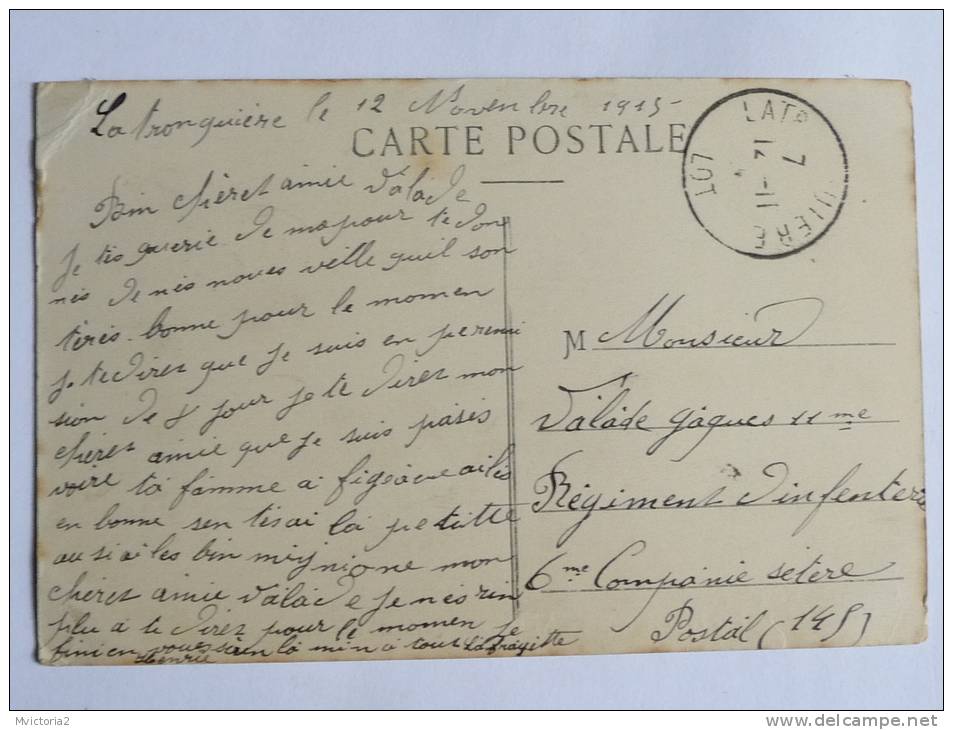 La tronquière le 12 Novenbre 1915
CARTE POSTALE
LATR
7
12 -11
LOT
Bin chèret amie Valade
Je tes querie de mo pour te don
nés de nés nouves velle quil son
tèrés. bonne pour le momen
je te direz que je suis en peremi
sion de 8 jour je te direz mon
chéret amie que je suis pasés
voire ta famme a figeac ailes
en bonne sen tés ai la petitte
au si ai les bin mignione mon
chéret amie Valade je nés rin
plu a te direz pour le momen je
fini en vous serin la min a tout Lafragette
Henrie
M Monsieur
Valade Jaques 11 me
Régiment d'infenterie
6 me Companie seterc
Postal (145)
Mvictoria2
delcampe.net